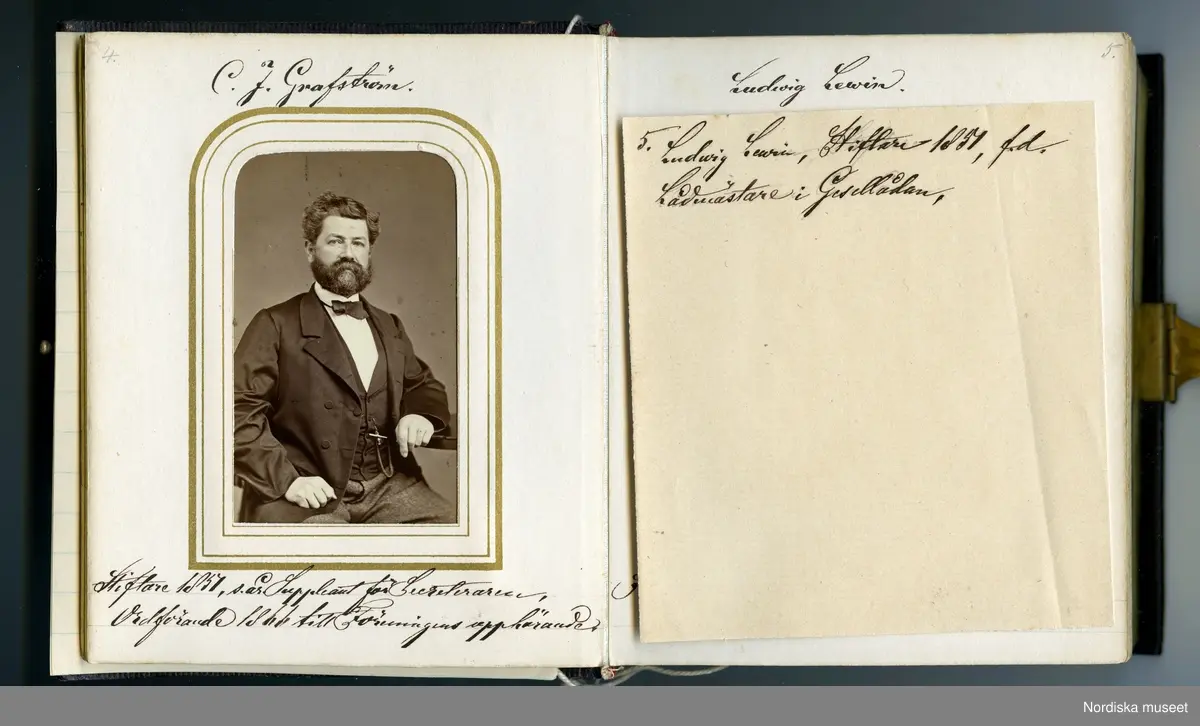 4.
C. J. Grafström.
Stiftare 1851, s.år Suppleant för Secreteraren,
Ordförande 1860 till Föreningens upphörande.
5.
Ludwig Lewin.
5. Ludwig Lewin, Stiftare 1851, f.d.
Lådmästare i Geselllådan,
Nordiska museet